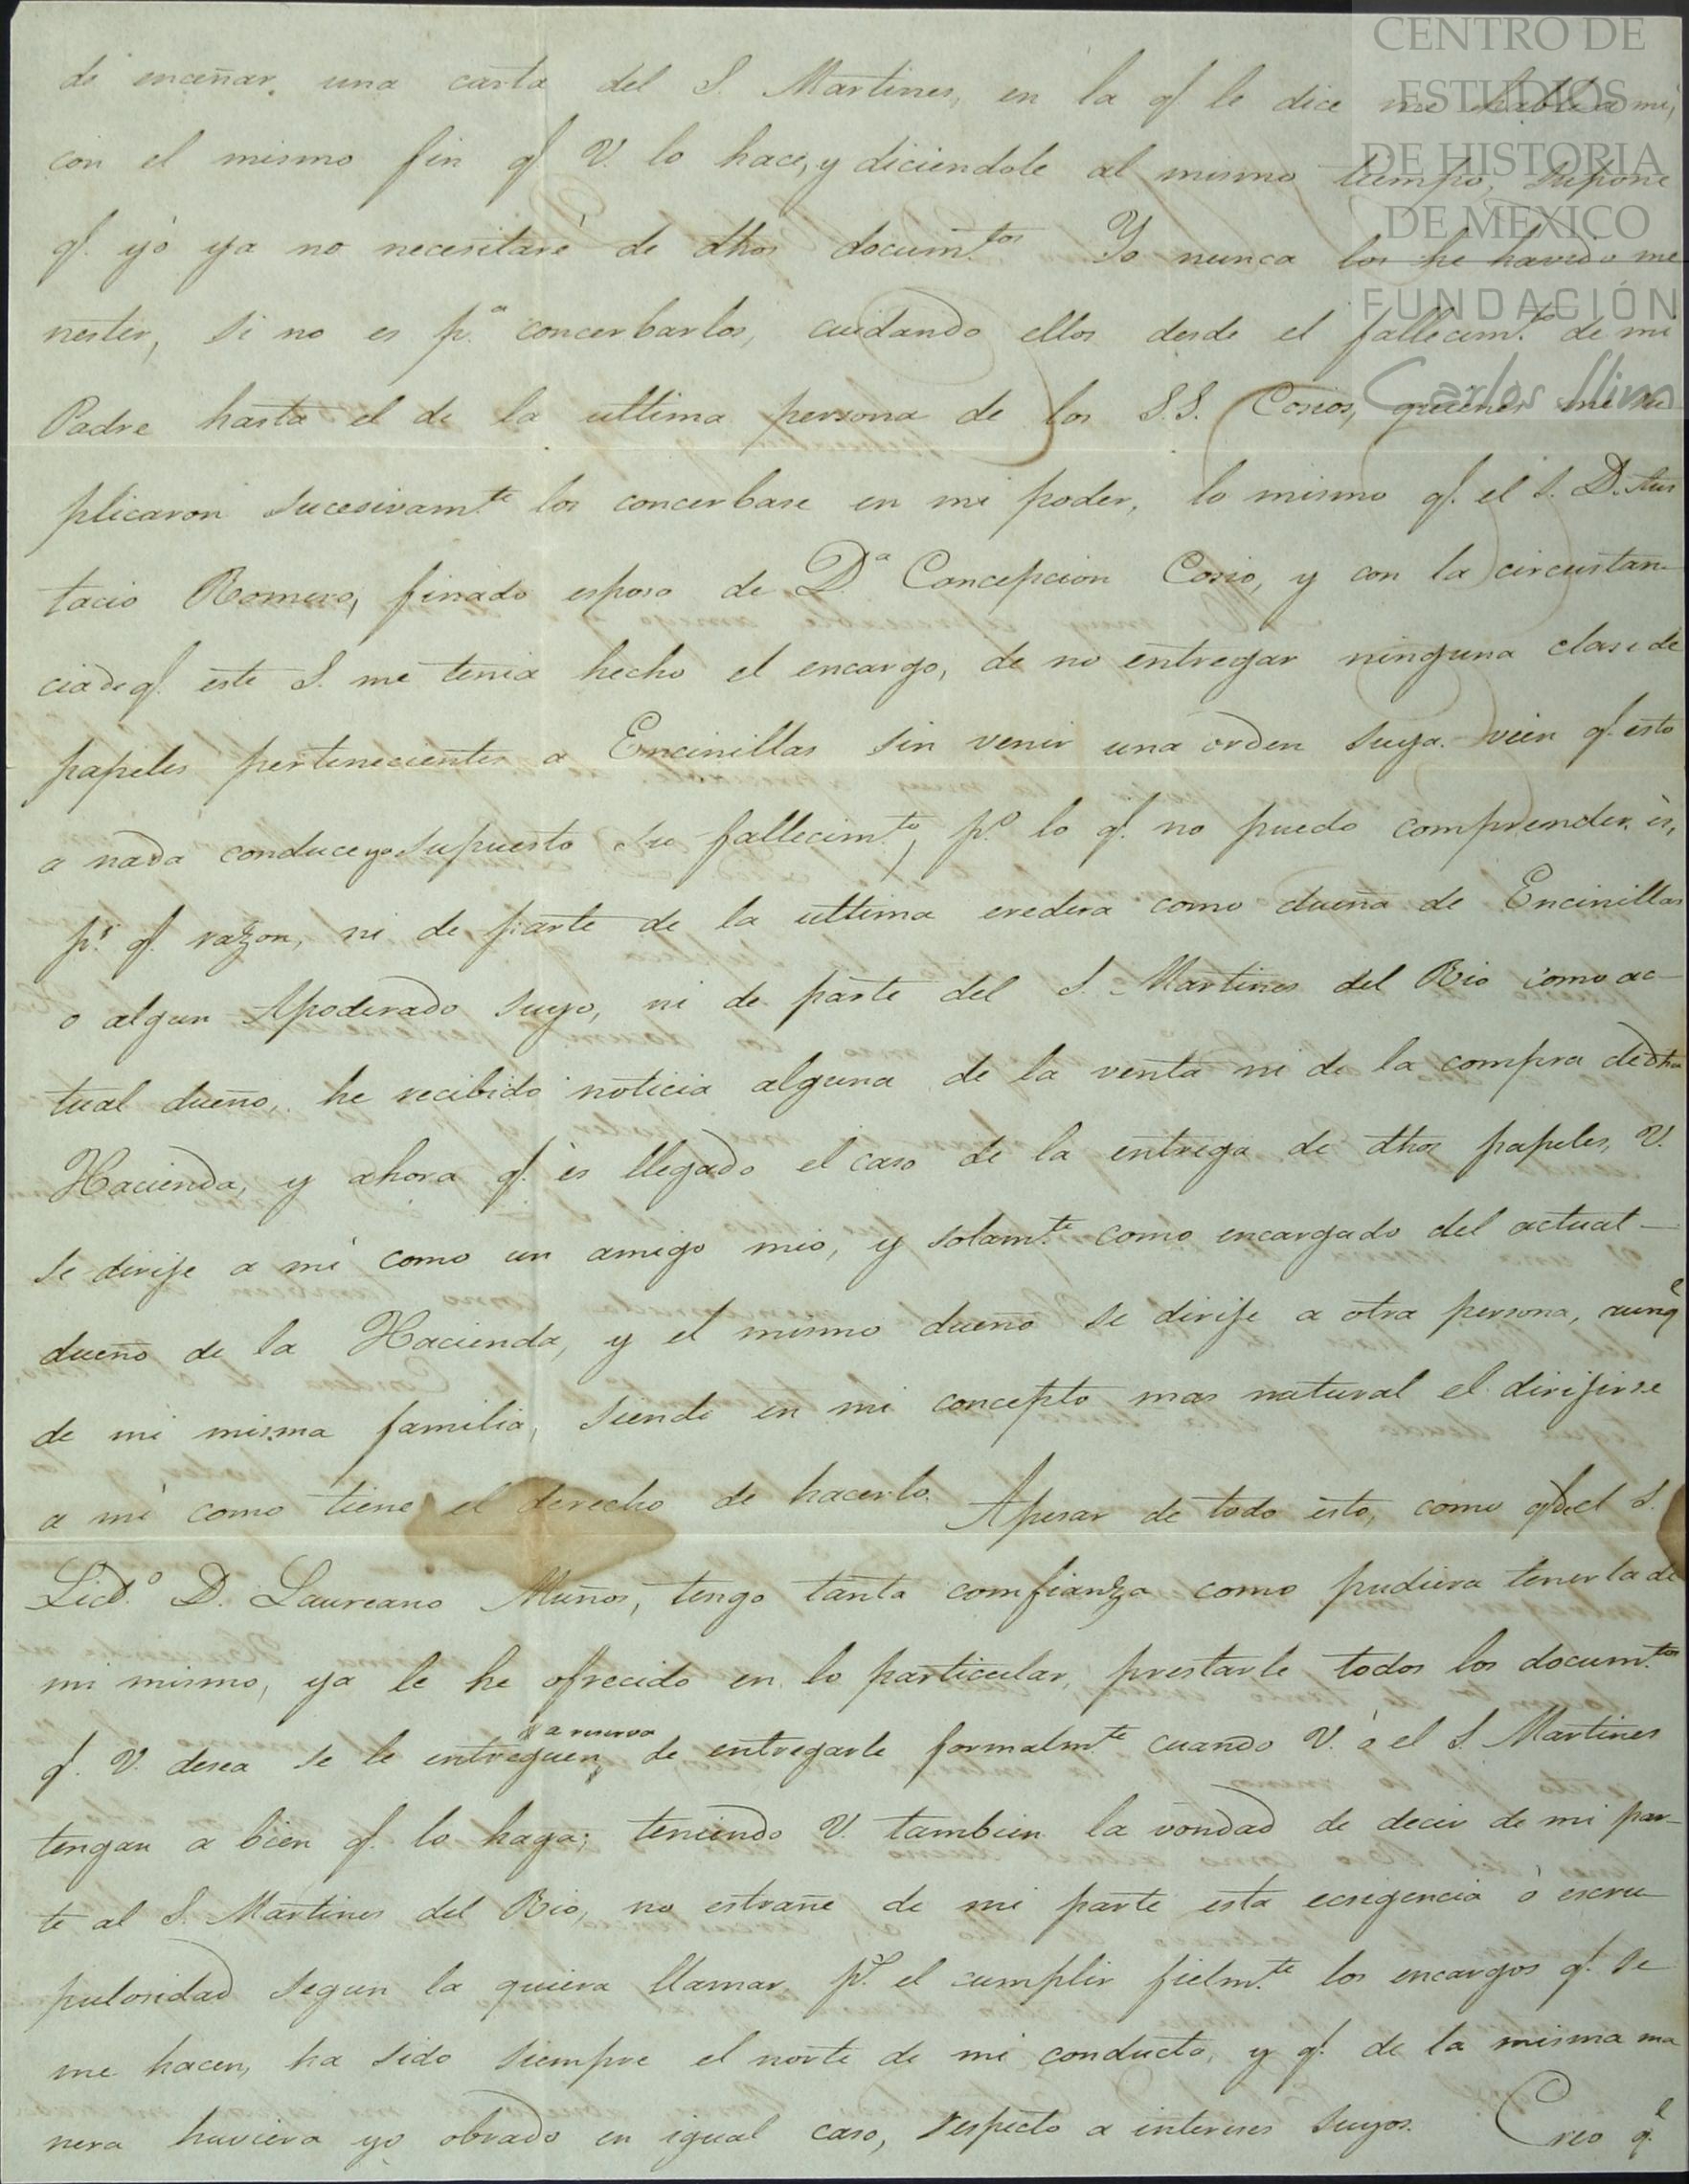 CENTRO DE
ESTUDIOS
DE HISTORIA
DE MEXICO
FUNDACIÓN
Carlos Slim
de enceñar una carta del S. Martines, en la q.e le dice me hable a mi,
con el mismo fin q.e V. lo hace, y diciendole al mismo tiempo, supone
q.e yo ya no necesitaré de dhos docum.tos Yo nunca los he havido me
nester, si no es p.a concerbarlos, cuidando ellos desde el fallecim.to de mi
Padre hasta el de la ultima persona de los S.S. Cosios, quienes me su
plicaron sucesivam.te los concerbase en mi poder, lo mismo q.e el S. D. Aus
tacio Romero, finado esposo de D.a Concepcion Cosio, y con la circustan-
cia de q.e este S. me tenia hecho el encargo, de no entregar ninguna clase de
papeles pertenecientes a Encinillas sin venir una orden suya. vien q.e esto
a nada conduce ya supuesto su fallecim.to, p.o lo q.e no puedo comprender, és,
p.r q.e razon, ni de parte de la ultima eredera como dueña de Encinillas
o algun Apoderado suyo, ni de parte del S. Martines del Rio como ac-
tual dueño, he recibido noticia alguna de la venta ni de la compra de dha
Hacienda, y ahora q.e es llegado el caso de la entrega de dhos papeles, V.
se dirije a mi como un amigo mio, y solam.te como encargado del actual-
dueño de la Hacienda, y el mismo dueño se dirije a otra persona, aunq.e
de mi misma familia, siendo en mi concepto mas natural el dirijirse
a mi como tiene el derecho de hacerlo. Apesar de todo esto, como q.e del S.
Licd.o D. Laureano Muños, tengo tanta comfianza como pudiera tenerla de
mi mismo, ya le he ofrecido en lo particular, prestarle todos los docum.tos
a reserva
q.e V. desea se le entreguen, de entregarle formalm.te cuando V. ó el S. Martines
tengan a bien q.e lo haga; teniendo V. tambien la vondad de decir de mi par-
te al S. Martines del Rio, no estrañe de mi parte esta ecsigencia ó escru-
pulosidad segun la quiera llamar, p.s el cumplir fielm.te los encargos q.e se
me hacen, ha sido siempre el norte de mi conducta, y q.e de la misma ma
nera huviera yo obrado en igual caso, respecto a intereses suyos. Creo q.e